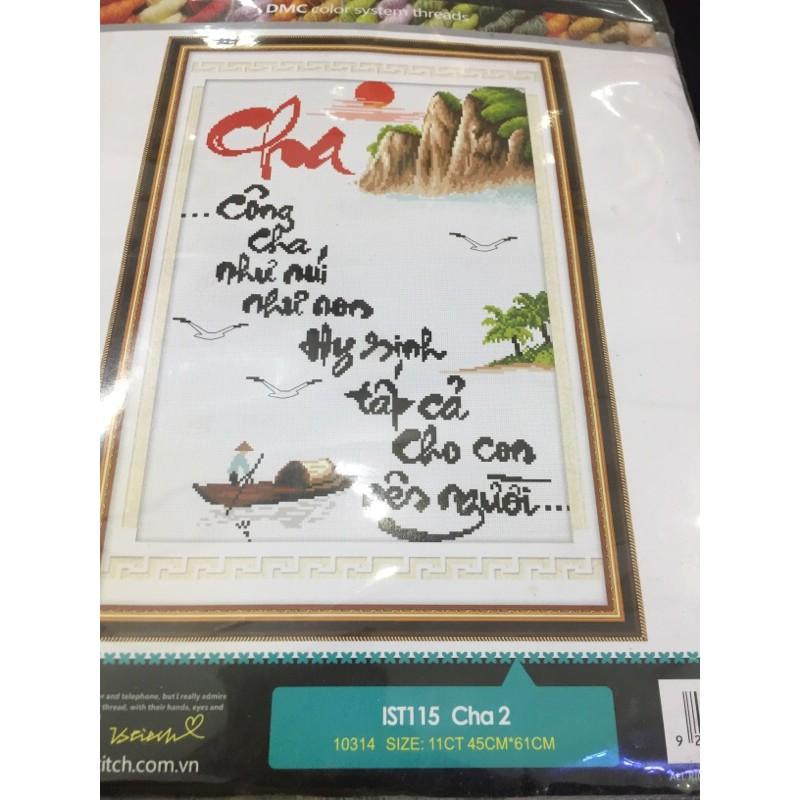 DMC color system threads
Cha
...Công
Cha
như núi
như non
Hy sinh
tất cả
Cho con
nên người...
and telephone, but I really admire
thread, with their hands, eyes and
ritch.com.vn
IST115 Cha 2
10314 SIZE: 11CT 45CM*61CM
9 2